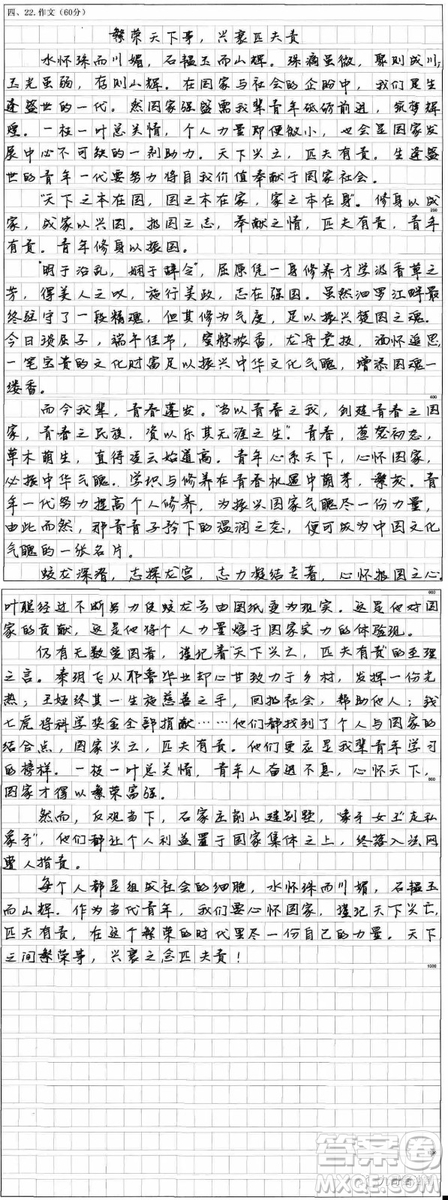 四、22.作文(60分)
繁荣天下事，兴衰匹夫责
水怀珠而川媚，石韫玉而山辉。珠滴虽微，聚则成川；
玉光虽弱，存则山辉。在国家与社会的企盼中，我们是生
逢盛世的一代。然国家强盛需我辈青年砥砺前进，筑梦辉
煌。一枝一叶总关情，个人力量即便微小，也会是国家发
展中心不可缺的一剂助力。天下兴亡，匹夫有责。生逢盛
世的青年一代要努力将自我价值奉献于国家社会。
“天下之本在国，国之本在家，家之本在身”。修身以成
家，成家以兴国。报国之志，奉献之情，匹夫有责，青年
有责。青年修身以振国。
“明于治乱，娴于辞令”，屈原凭一身修养才学汲香草之
芳，得美人之叹，施行美政，志在强国。虽然汨罗江畔最
终驻守了一段精魂，但其修为气度，足以振兴楚国之魂。
今日读屈子，端午佳节，赏粽放香，龙舟竞技，缅怀遥思
一笔宝贵的文化财富足以振兴中华文化气魄，增添国魂一
缕香。
400
而今我辈，青春蓬发。“当以青春之我，创建青春之国
家，青春之民族，资以乐其无涯之生”。青春，葱茏初态，
草木萌生，直得凌云始道高。青年心系天下，心怀国家，
必振中华气魄。学识与修养在青春机遇中萌芽，繁茂。青
年一代努力提高个人修养，为振兴国家气魄尽一份力量，
由此而然，那青青子衿下的温润之态，便可成为中国文化
气魄的一张名片。
蛟龙深潜，志择龙宫，志力凝结走着，心怀报国之心
600
叶聪经过不断努力使蛟龙号由图纸变为现实。这是他对国
家的贡献，这是他将个人力量熔于国家实力的体验现。
仍有无数爱国者，谨记着“天下兴亡，匹夫有责”的至理
之言。秦玥飞从耶鲁毕业却心甘致力于乡村，发挥一份光
热；王珏终其一生施慈善之手，回报社会，帮助他人；钱
七虎将科学奖金全部捐献……他们都找到了个人与国家的
结合点，国家兴亡，匹夫有责。他们更应是我辈青年学习
的榜样。一枝一叶总关情，青年人奋进不息，心怀天下，
国家才得以繁荣富强。
然而，反观当下，石家庄削山建别墅，“牵牛女”“龙私
豪子”，他们都让个人利益置于国家集体之上，终落入法网
遭人指责。
每个人都是组成社会的细胞，水怀珠而川媚，石韫玉
而山辉。作为当代青年，我们要心怀国家，谨记天下兴亡，
匹夫有责，在这个繁荣的时代里尽一份自己的力量。天下
之间繁荣事，兴衰之念匹夫责！
1000
答案圈